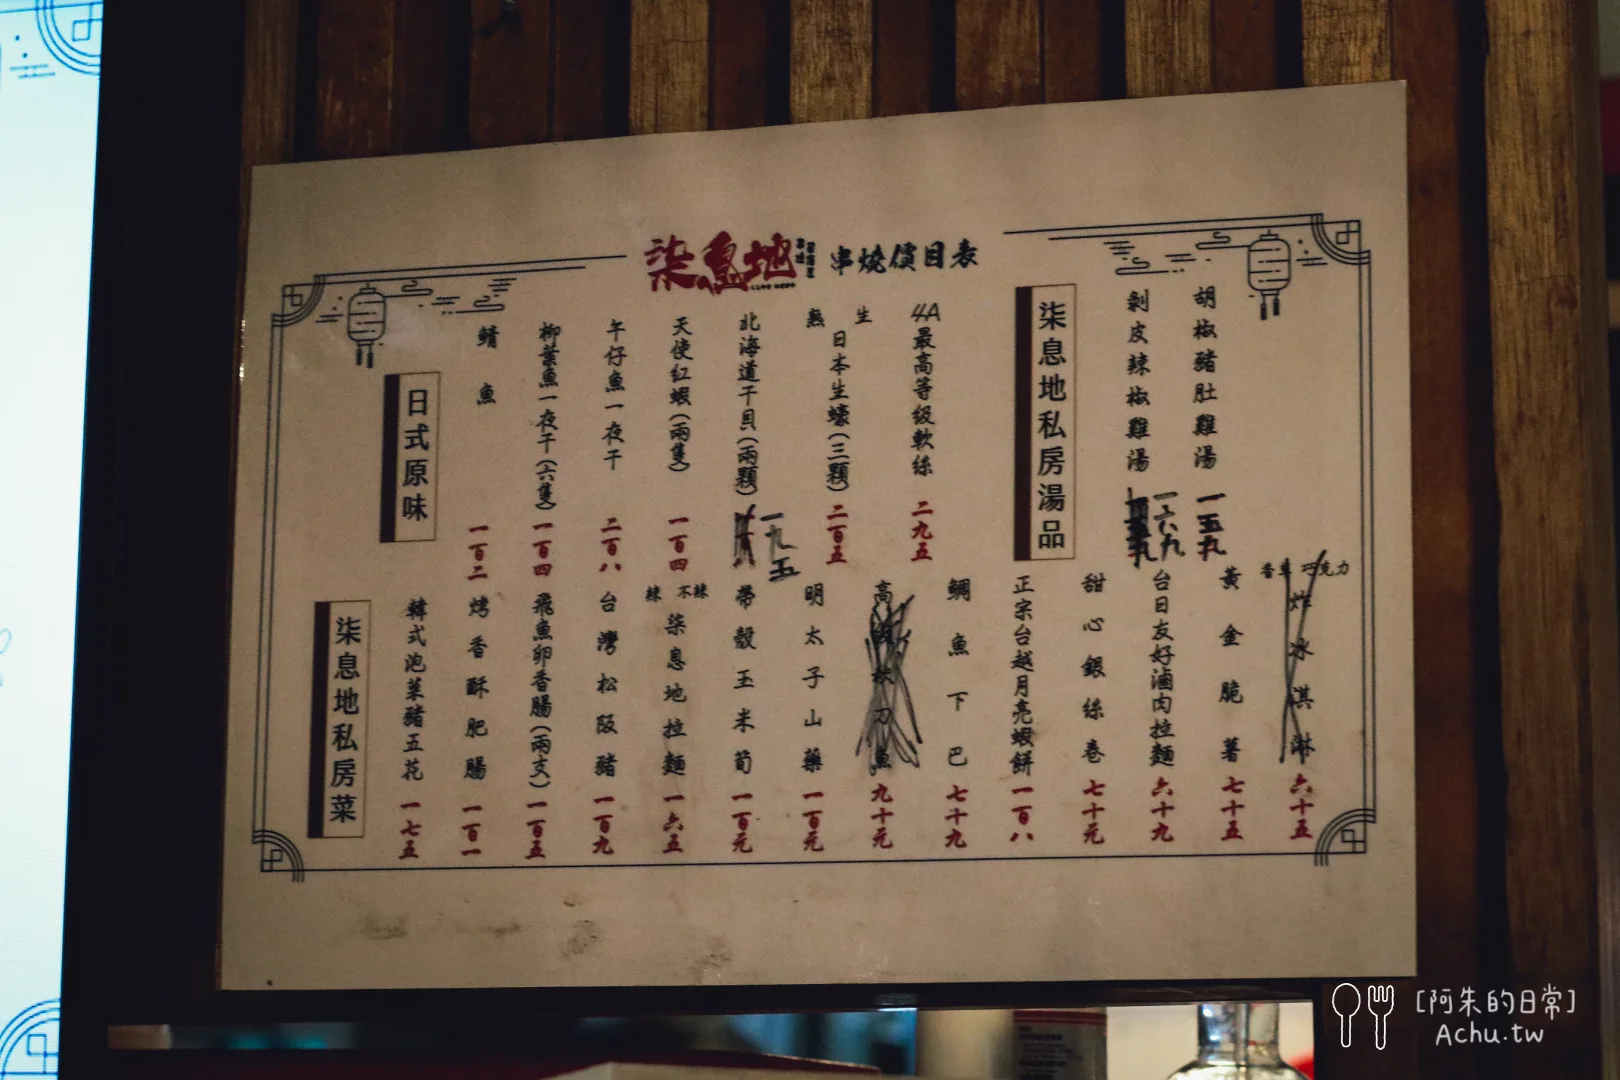 柒息地
串燒價目表
胡椒豬肚雞湯 一五九
剝皮辣椒雞湯 一六九
柒息地私房湯品
4A最高等級軟絲 二九五
生 熟
日本生蠔(三顆) 二百五
北海道干貝(兩顆) 一九五
天使紅蝦(兩隻) 一百四
午仔魚一夜干 二百八
柳葉魚一夜干(六隻) 一百四
鯖魚 一百二
日式原味
香草 巧克力
炸冰淇淋 六十五
黃金脆薯 七十五
台日友好滷肉拉麵 六十九
甜心銀絲卷 七十元
正宗台越月亮蝦餅 一百八
鯛魚下巴 七十九
高 秋刀魚 九十元
明太子山藥 一百元
帶殼玉米筍 一百元
不辣 辣
柒息地拉麵 一六五
台灣松阪豬 一百九
飛魚卵香腸(兩支) 一百五
烤香酥肥腸 一百一
韓式泡菜豬五花 一七五
柒息地私房菜
[阿朱的日常]
Achu.tw